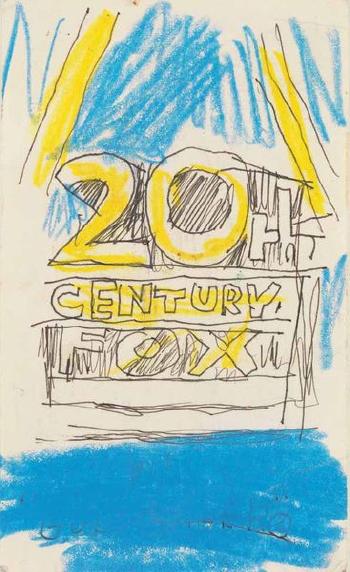 20TH
CENTURY
FOX